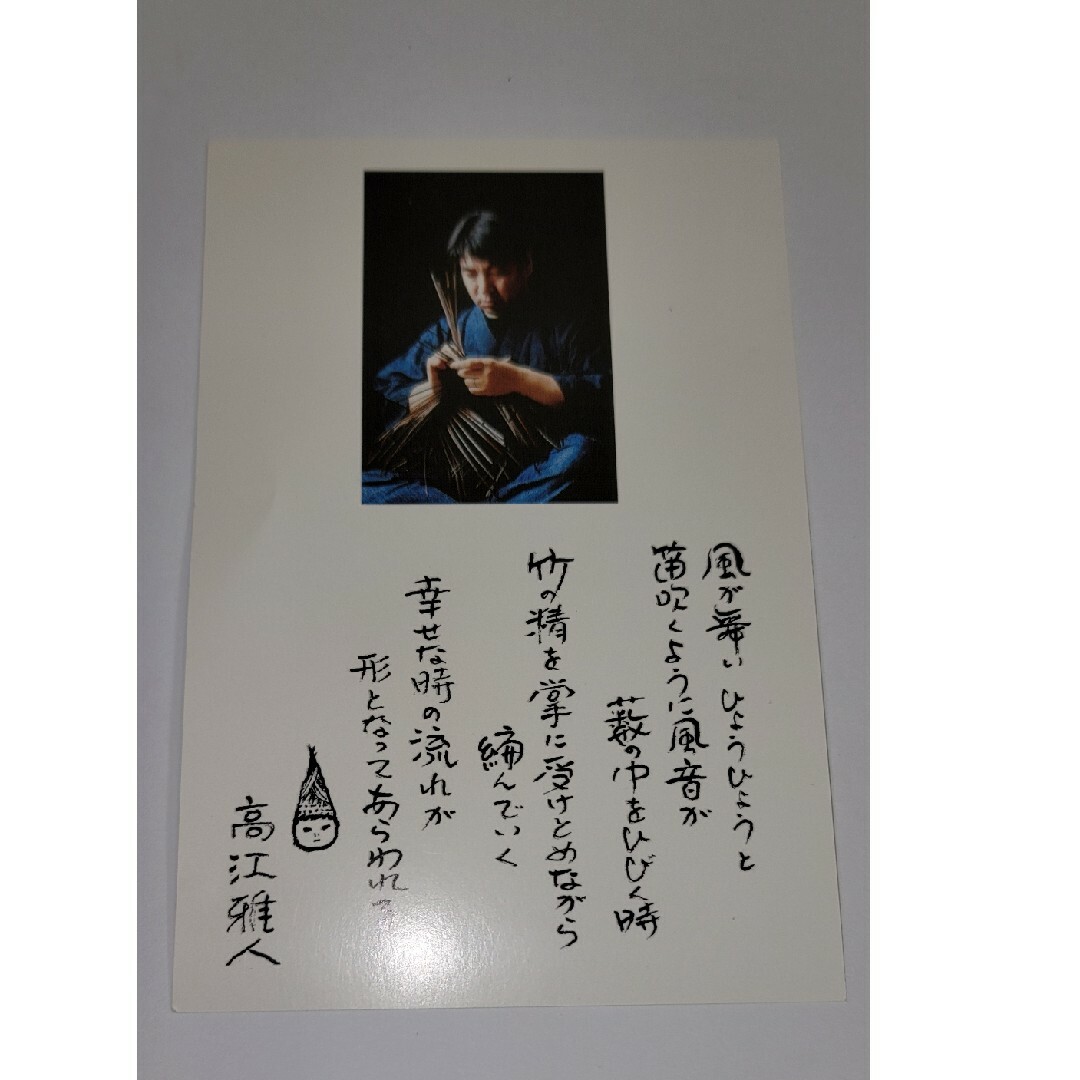 風が舞い ひょうひょうと
笛吹くように風音が
藪の中をひびく時
竹の精を掌に受けとめながら
締んでいく
幸せな時の流れが
形となってあらわれ
高江雅人